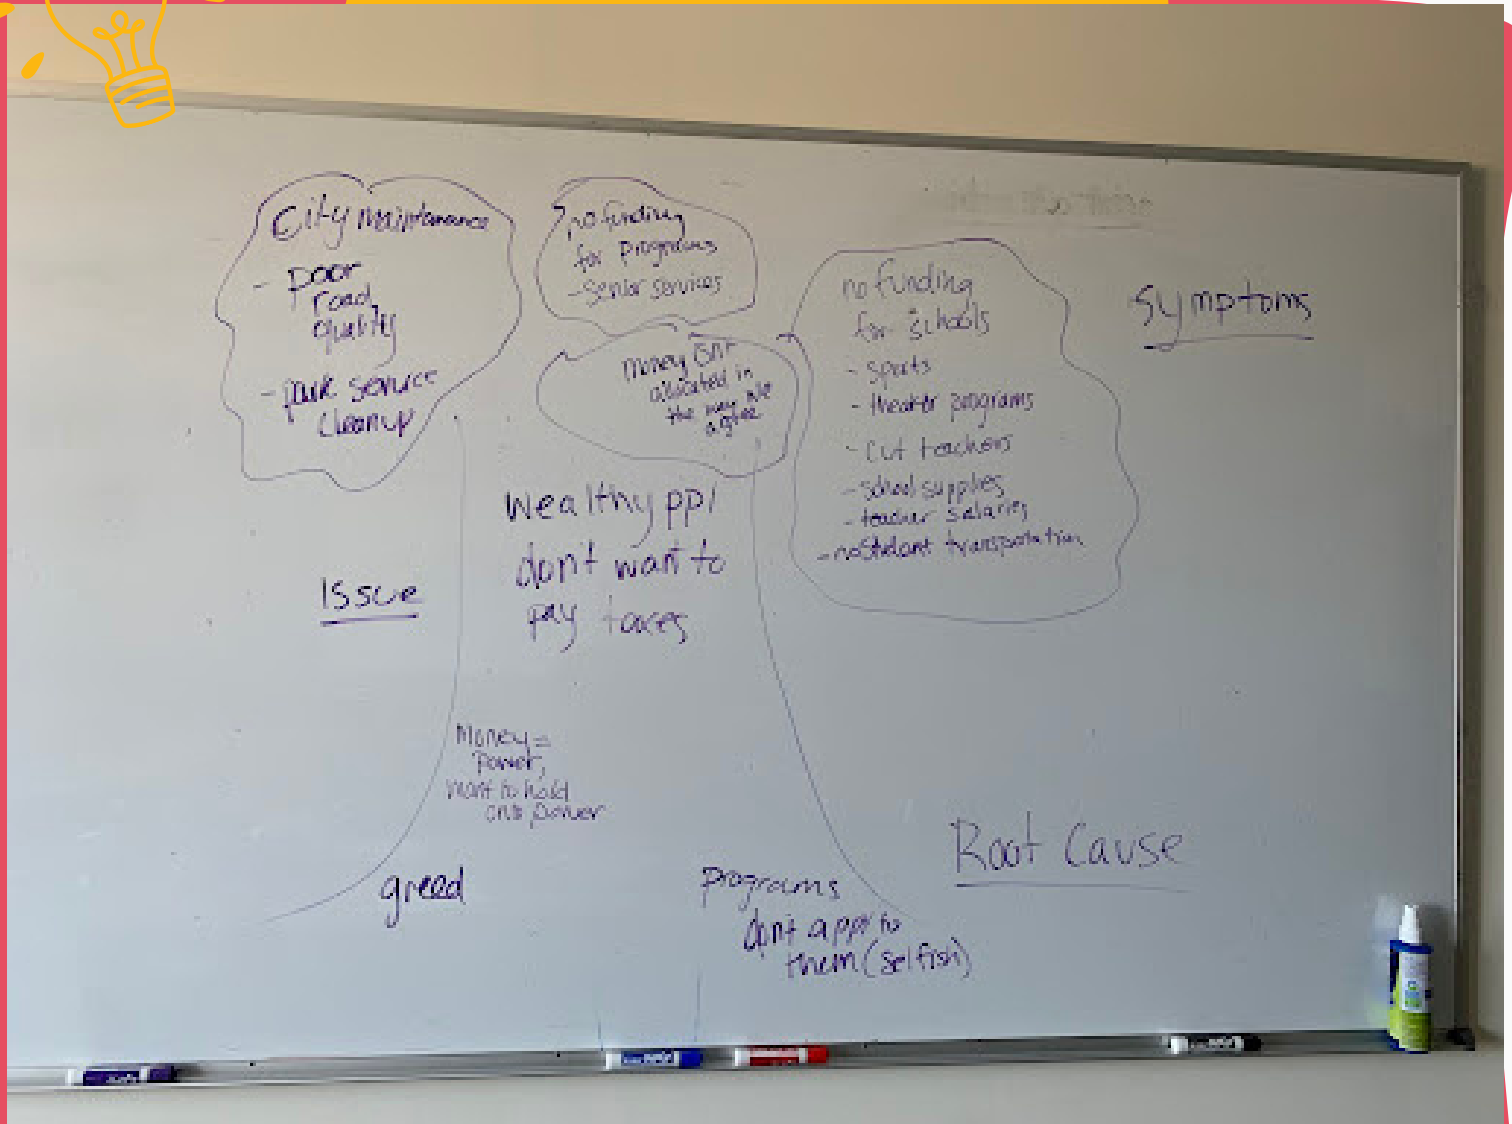 City maintenance
- poor
road
quality
- park service
cleanup
no funding
for programs
- senior services
money isn't
allocated in
the way we
agree
no funding
for schools
- sports
- theater programs
- cut teachers
- school supplies
- teacher salaries
- no student transportation
Symptoms
Issue
wealthy ppl
don't want to
pay taxes
Money =
power,
want to hold
onto power
greed
programs
don't appl to
them (selfish)
Root Cause